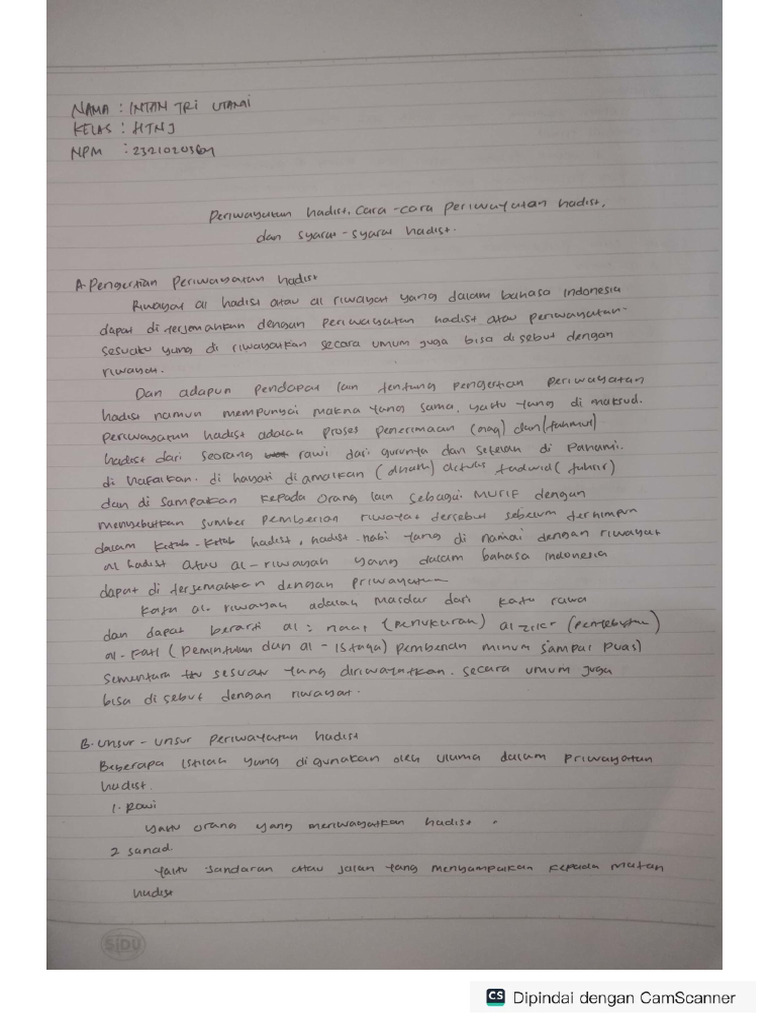 NAMA : INTAN TRI UTAMI
KELAS : HTN J
NPM : 2321020364
Periwayatan hadist, Cara-cara Periwayatan hadist,
dan syarat-syarat hadist.
A. Pengertian Periwayatan hadist
Riwayat al hadist atau al riwayat yang dalam bahasa Indonesia
dapat di terjemahkan dengan periwayatan hadist atau periwayatan
sesuatu yang di riwayatkan secara umum juga bisa di sebut dengan
riwayat.
Dan adapun pendapat lain tentang pengertian periwayatan
hadist namun mempunyai makna yang sama, yaitu yang di maksud.
periwayatan hadist adalah proses penerimaan (naq) dan (tahmul)
hadist dari seorang rawi dari gurunya dan setelah di Pahami.
di hafalkan. di hayati di amalkan ditulis tadwid
dan di sampaikan kepada orang lain sebagai MURIF dengan
menyebutkan sumber pemberian riwayat tersebut sebelum terhimpun
dalam kitab-kitab hadist, hadist-nabi yang di namai dengan riwayat
al hadist atau al-riwayah yang dalam bahasa Indonesia
dapat di terjemahkan dengan priwayatan
Kata al-riwayah adalah masdar dari kata rawa
dan dapat berarti al: naql (penukuran) al zikr (penyebutan)
al-fatl (pemintalan dan al-istiqa) pemberian minum sampai puas)
sementara itu sesuatu yang diriwayatkan. secara umum juga
bisa di sebut dengan riwayat.
B. Unsur-unsur periwayatan hadist
Beberapa istilah yang digunakan oleh ulama dalam Priwayatan
hadist.
1. Rawi
yaitu orang yang meriwayatkan hadist.
2 sanad
Yaitu sandaran atau jalan yang menyampaikan kepada matan
hadist
SIDU
CS Dipindai dengan CamScanner